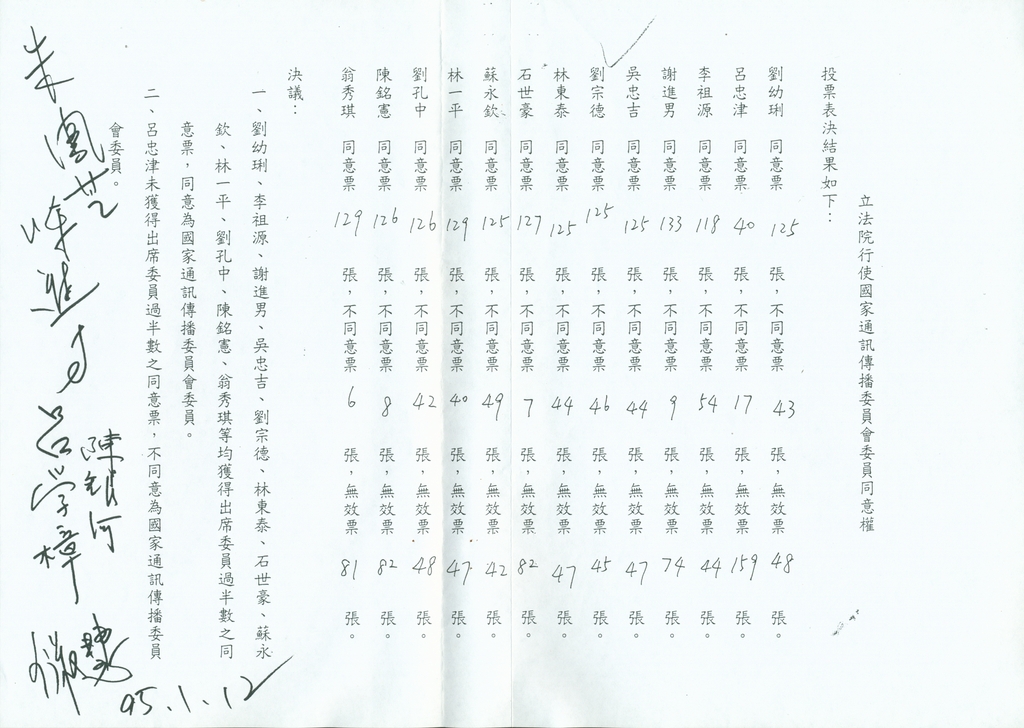 立法院行使國家通訊傳播委員會委員同意權
投票表決結果如下：
劉幼琍 同意票 125 張，不同意票 43 張，無效票 48 張。
呂忠津 同意票 40 張，不同意票 17 張，無效票 159 張。
李祖源 同意票 118 張，不同意票 54 張，無效票 44 張。
謝進男 同意票 133 張，不同意票 9 張，無效票 74 張。
吳忠吉 同意票 125 張，不同意票 44 張，無效票 47 張。
劉宗德 同意票 125 張，不同意票 46 張，無效票 45 張。
林東泰 同意票 125 張，不同意票 44 張，無效票 47 張。
石世豪 同意票 127 張，不同意票 7 張，無效票 82 張。
蘇永欽 同意票 125 張，不同意票 49 張，無效票 42 張。
林一平 同意票 129 張，不同意票 40 張，無效票 47 張。
劉孔中 同意票 126 張，不同意票 42 張，無效票 48 張。
陳銘憲 同意票 126 張，不同意票 8 張，無效票 82 張。
翁秀琪 同意票 129 張，不同意票 6 張，無效票 81 張。
決議：
一、劉幼琍、李祖源、謝進男、吳忠吉、劉宗德、林東泰、石世豪、蘇永
欽、林一平、劉孔中、陳銘憲、翁秀琪等均獲得出席委員過半數之同
意票，同意為國家通訊傳播委員會委員。
二、呂忠津未獲得出席委員過半數之同意票，不同意為國家通訊傳播委員
會委員。
朱鳳芝
陳進丁
呂學樟
陳銀河
95.1.12